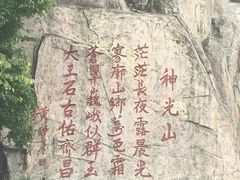 神光山
茫茫長夜露晨光
寥廓山鄉萬色霜
蒼翠巍峨似群玉
大王石古佑齊昌